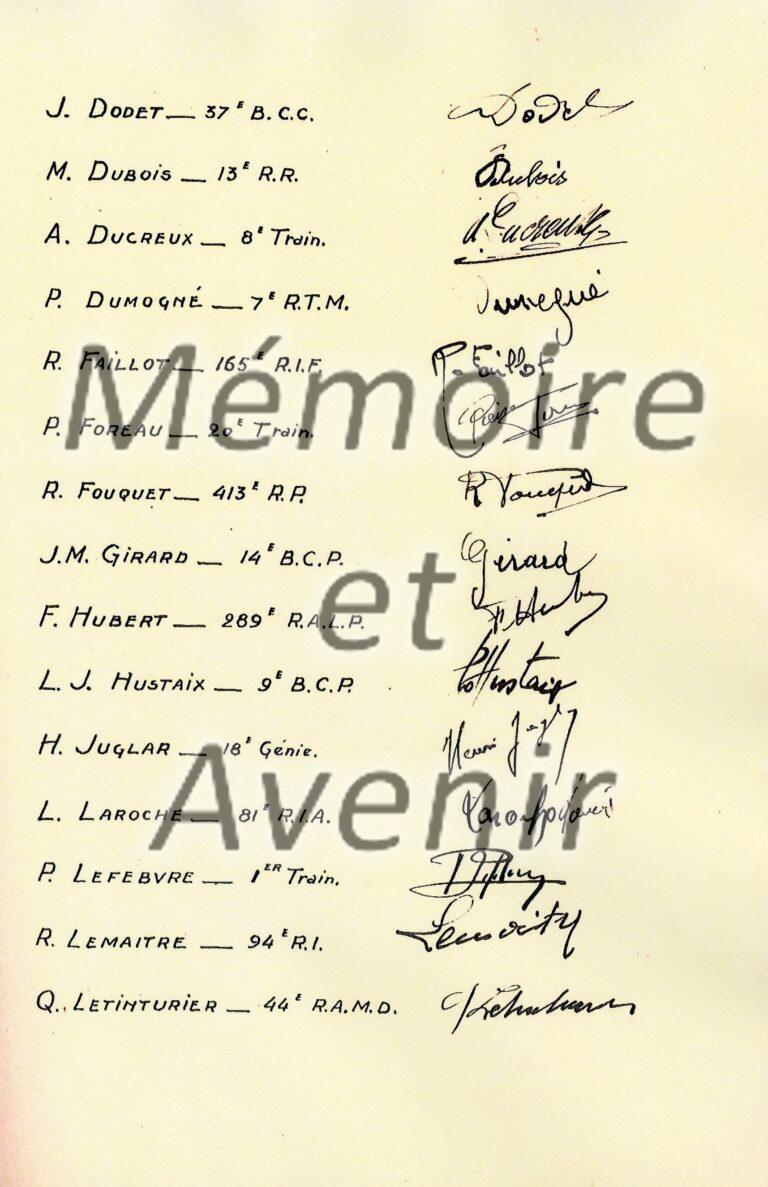 J. DODET — 37E B.C.C. Dodet
M. DUBOIS — 13E R.R. Dubois
A. DUCREUX — 8E Train. A. Ducreux
P. DUMOGNÉ — 7E R.T.M.
R. FAILLOT — 165E R.I.F. R. Faillot
P. FOREAU — 20E Train.
R. FOUQUET — 413E R.P. R Fouquet
J.M. GIRARD — 14E B.C.P. Girard
F. HUBERT — 289E R.A.L.P. F. Hub
L. J. HUSTAIX — 9E B.C.P. Hustaix
H. JUGLAR — 18E Génie. Henri
L. LAROCHE — 81E R.I.A.
P. LEFEBVRE — 1ER Train.
R. LEMAITRE — 94E R.I.
Q. LETINTURIER — 44E R.A.M.D.
Mémoire
et
Avenir